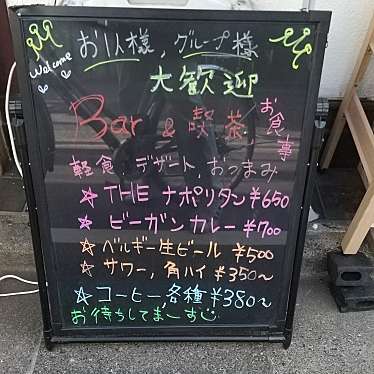 お1人様, グループ様
Welcome
大歓迎
Bar & 喫茶/お食事
軽食, デザート, おつまみ
☆ THE ナポリタン ¥650
☆ ビーガンカレー ¥700
☆ ベルギー生ビール ¥500
☆ サワー, 角ハイ ¥350〜
☆ コーヒー, 各種 ¥380〜
お待ちしてまーす